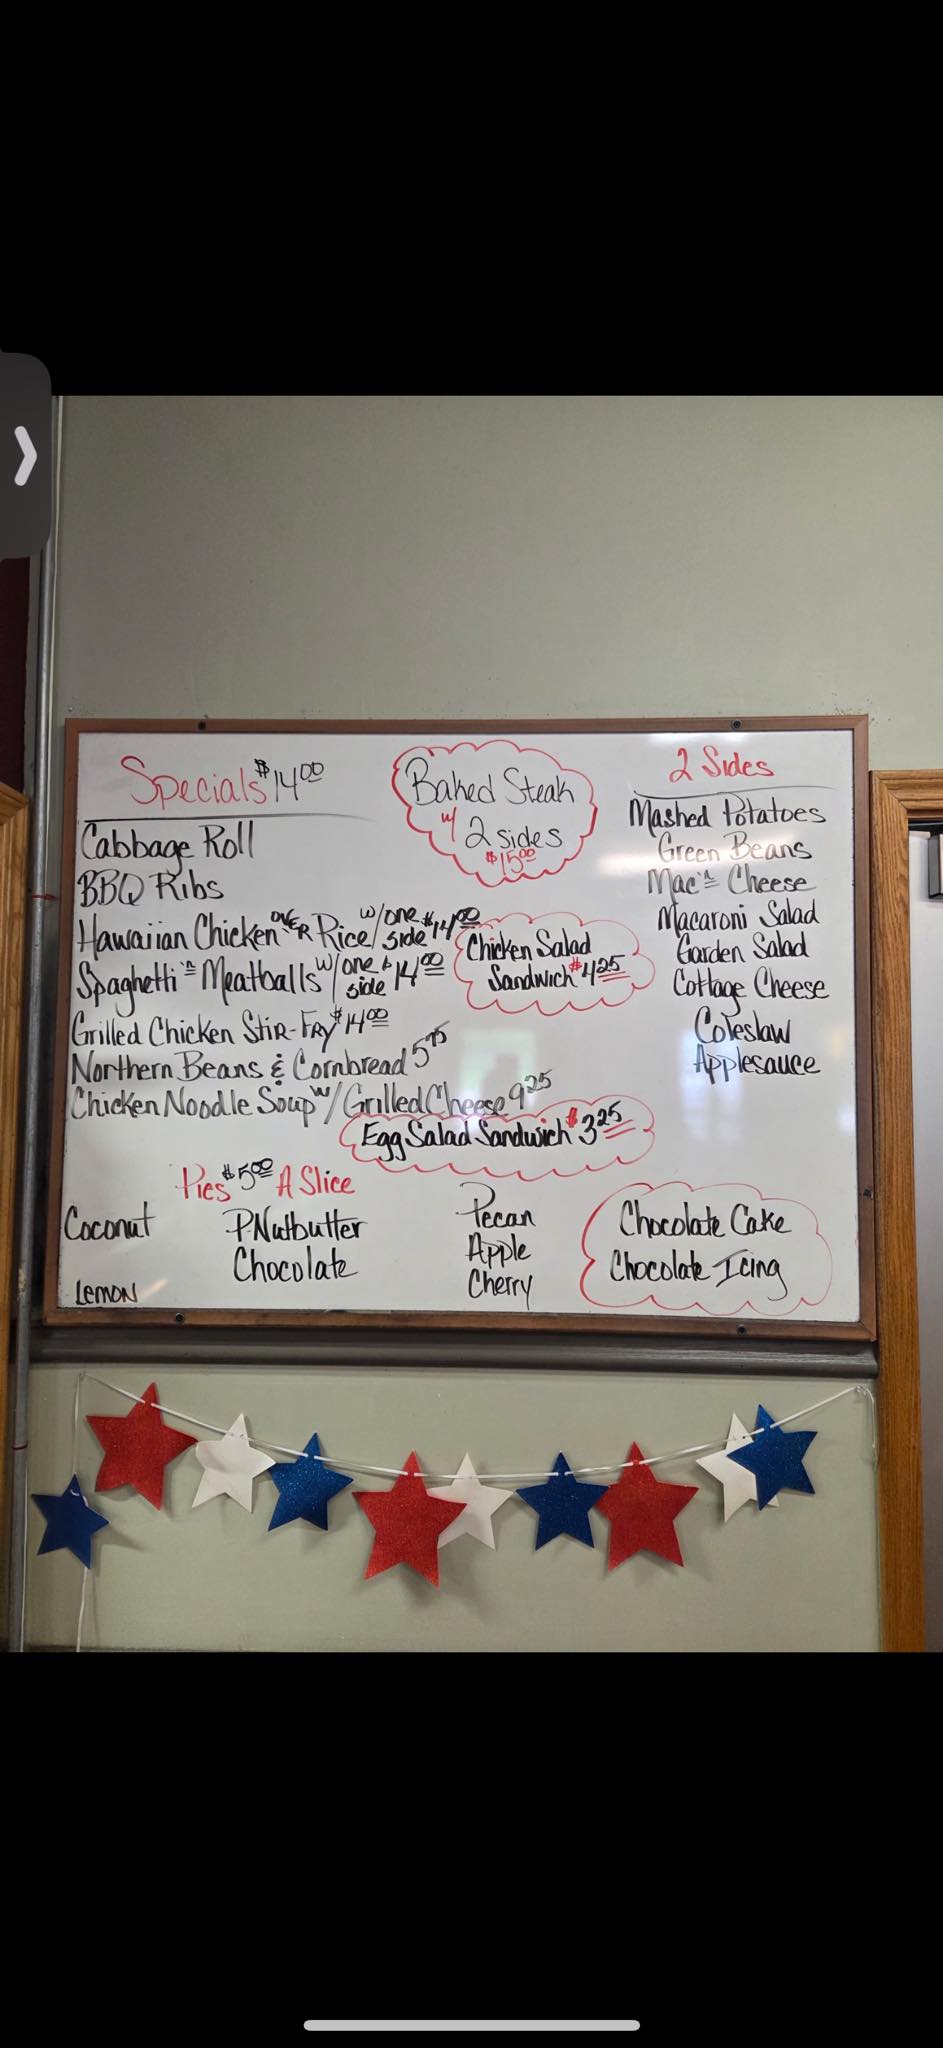 Specials $14.00
Cabbage Roll
BBQ Ribs
Hawaiian Chicken OVER Rice w/one side $14.00
Spaghetti 'n Meatballs w/one side $14.00
Grilled Chicken Stir-Fry $14.00
Northern Beans & Cornbread 5.75
Chicken Noodle Soup w/Grilled Cheese 9.25
Baked Steak
w/ 2 sides
$15.00
Chicken Salad
Sandwich $4.25
Egg Salad Sandwich $3.25
2 Sides
Mashed Potatoes
Green Beans
Mac 'n Cheese
Macaroni Salad
Garden Salad
Cottage Cheese
Coleslaw
Applesauce
Pies $5.00 A Slice
Coconut
Lemon
P-Nutbutter
Chocolate
Pecan
Apple
Cherry
Chocolate Cake
Chocolate Icing